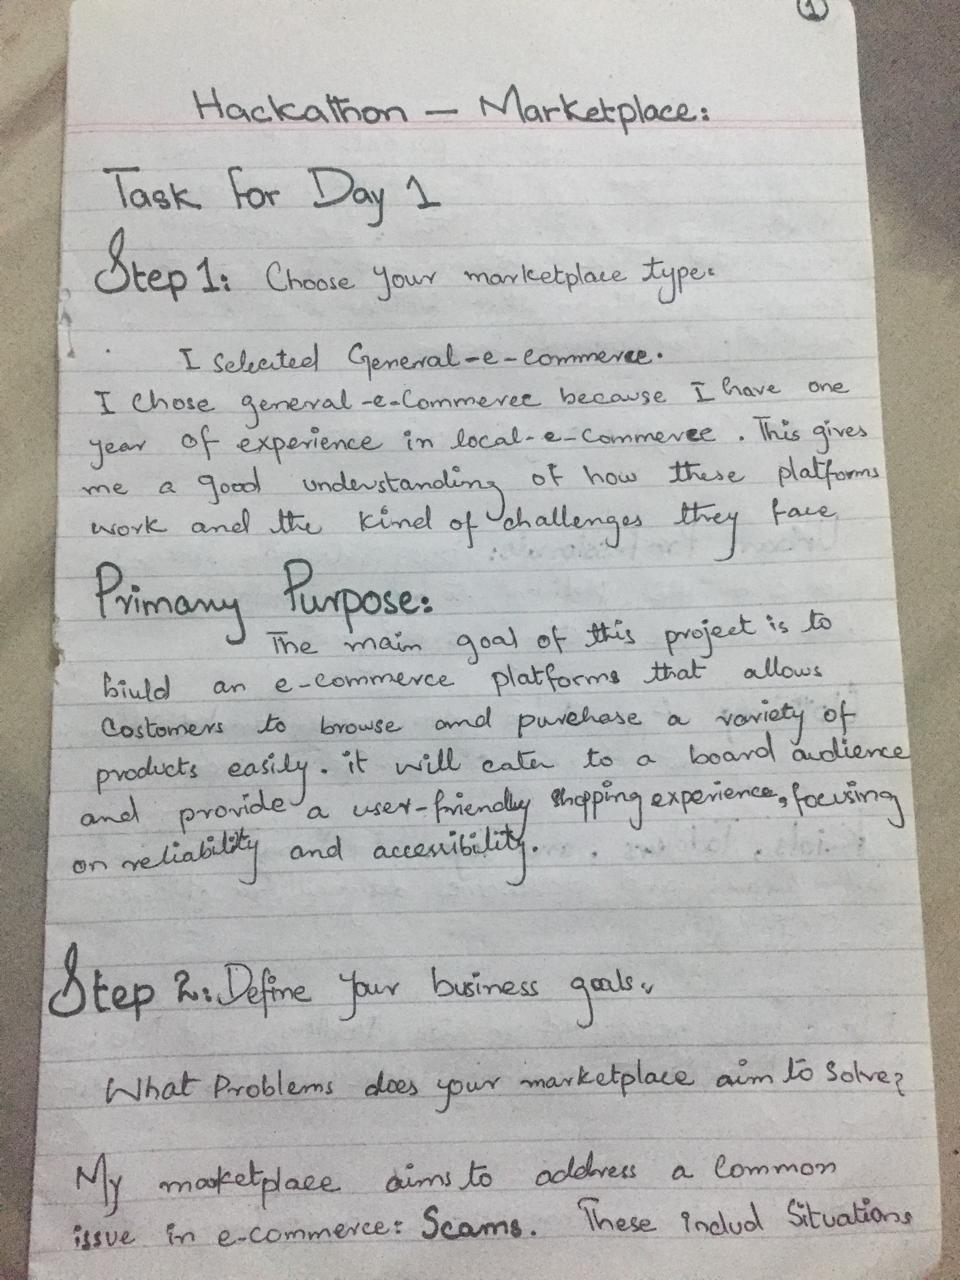 1
Hackathon – Marketplace:
Task for Day 1
Step 1: Choose your marketplace type:
I selected General-e-commerce.
I chose general-e-commerce because I have one
year of experience in local-e-commerce. This gives
me a good understanding of how these platforms
work and the kind of challenges they face
Primary Purpose:
The main goal of this project is to
biuld an e-commerce platforms that allows
Costomers to browse and purchase a variety of
products easily. it will cater to a board audience
and provide a user-friendly shopping experience, focusing
on reliability and accessibility.
Step 2: Define your business goals.
What Problems does your marketplace aim to solve?
My marketplace aims to address a common
issue in e-commerce: Scams. These includ Situations